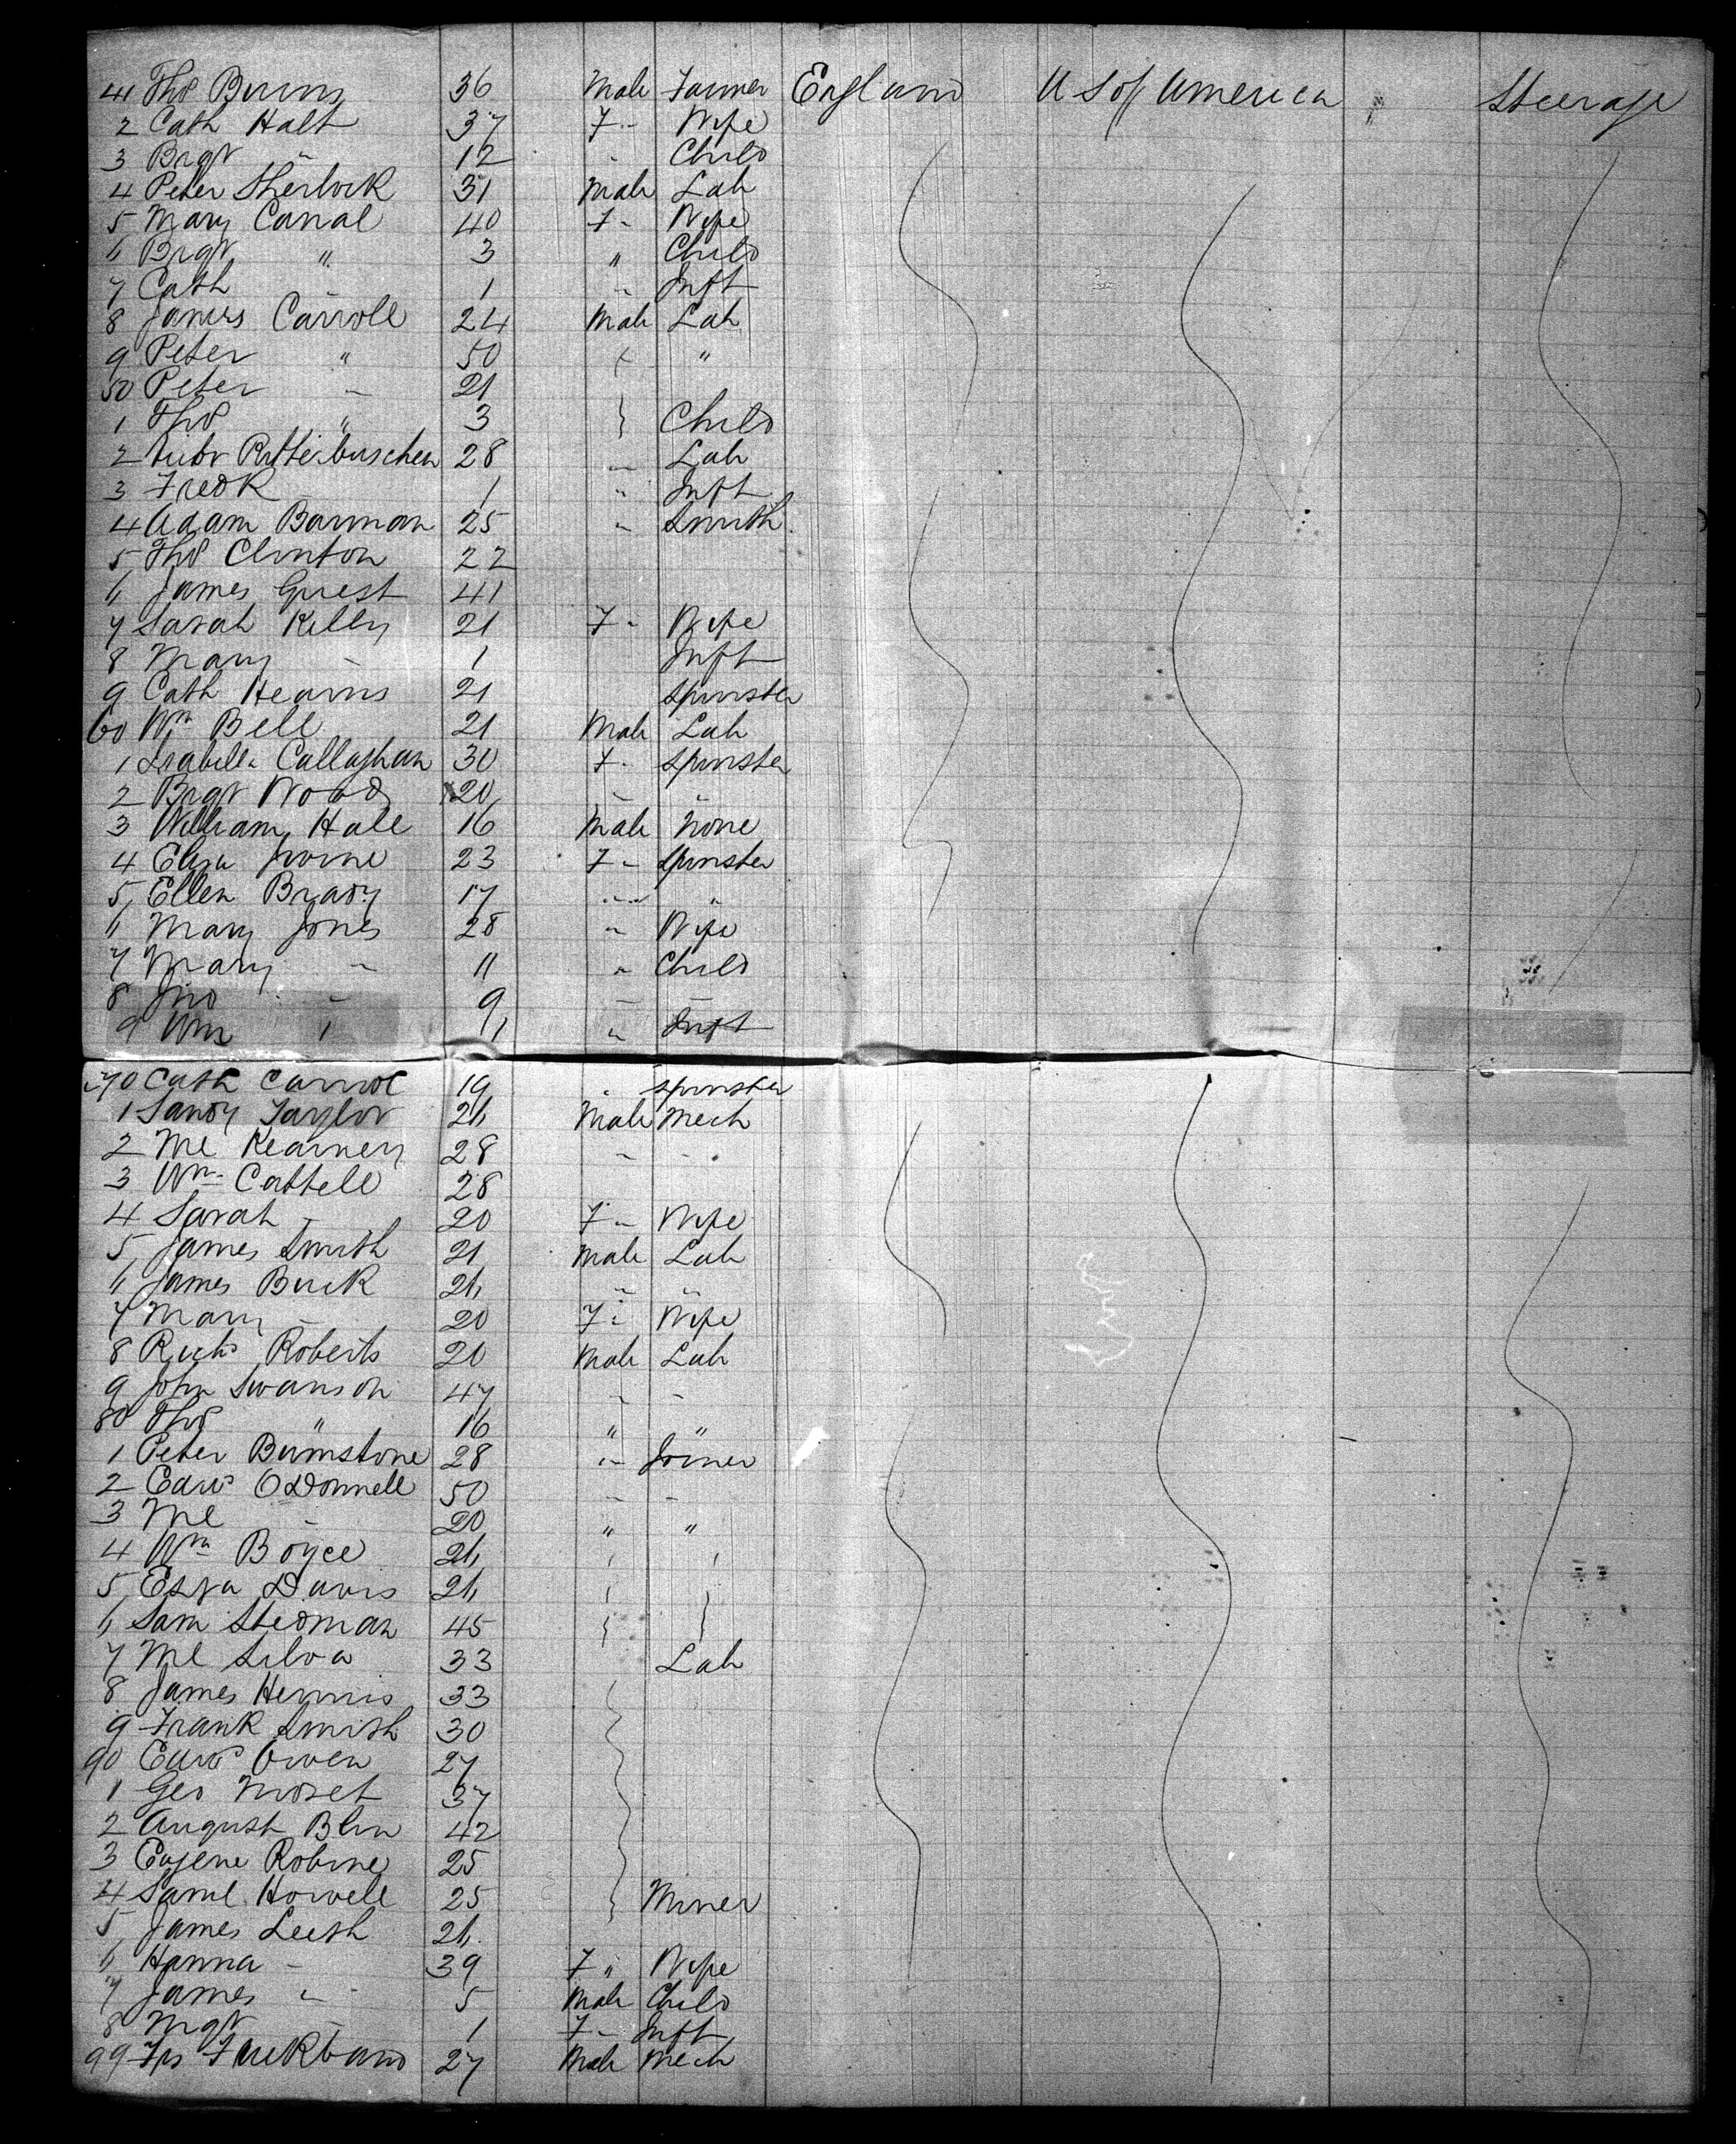 41 Thos Burns 36 Male Farmer England U S of America Steerage
2 Cath Halt 37 F " Wife
3 Brgt " 12 " Child
4 Peter Sherlock 31 Male Lab
5 Mary Canal 40 F " Wife
6 Brgt " 3 " Child
7 Cath " 1 " Inft
8 James Carroll 24 Male Lab
9 Peter " 50 " "
50 Peter " 21
1 Thos " 3 Child
2 Rotterbuschen 28 " Lab
3 Fredk 1 " Inft
4 Adam Barman 25 " Smith
5 Thos Clinton 22
6 James Guest 41
7 Sarah Kelly 21 F " Wife
8 Mary " 1 Inft
9 Cath Hearns 21 Spinster
60 Wm Bell 21 Male Lab
1 Isabella Callaghan 30 F " Spinster
2 Brgt Wood 20 " "
3 William Hall 16 Male None
4 Eliza Irvine 23 F " Spinster
5 Ellen Brady 17 " "
6 Mary Jones 28 " Wife
7 Mary " 11 " Child
8 Jno " 9 " "
9 Wm " 1 " Inft
70 Cath Carrol 19 " Spinster
1 Sandy Taylor 21 Male Mech
2 Ml Kearney 28 " "
3 Wm Cattell 28
4 Sarah " 20 F " Wife
5 James Smith 21 Male Lab
6 James Buck 21 " "
7 Mary " 20 F " Wife
8 Richd Roberts 20 Male Lab
9 John Swanson 47 " "
80 Thos " 16 " "
1 Peter Bumstone 28 " Joiner
2 Edwd O'Donnell 50 " "
3 Ml " 20 " "
4 Wm Boyce 21 " "
5 Ezra Davis 21
6 Sam Stedman 45
7 Ml Silva 33 Lab
8 James Hennis 33
9 Frank Smith 30
90 Edwd Owen 27
1 Geo Moset 37
2 August Blin 42
3 Eugene Robine 25
4 Saml Howell 25 Miner
5 James Leesh 21
6 Hanna " 39 F " Wife
7 James " 5 Male Child
8 Mgt " 1 F " Inft
99 27 Male Mech